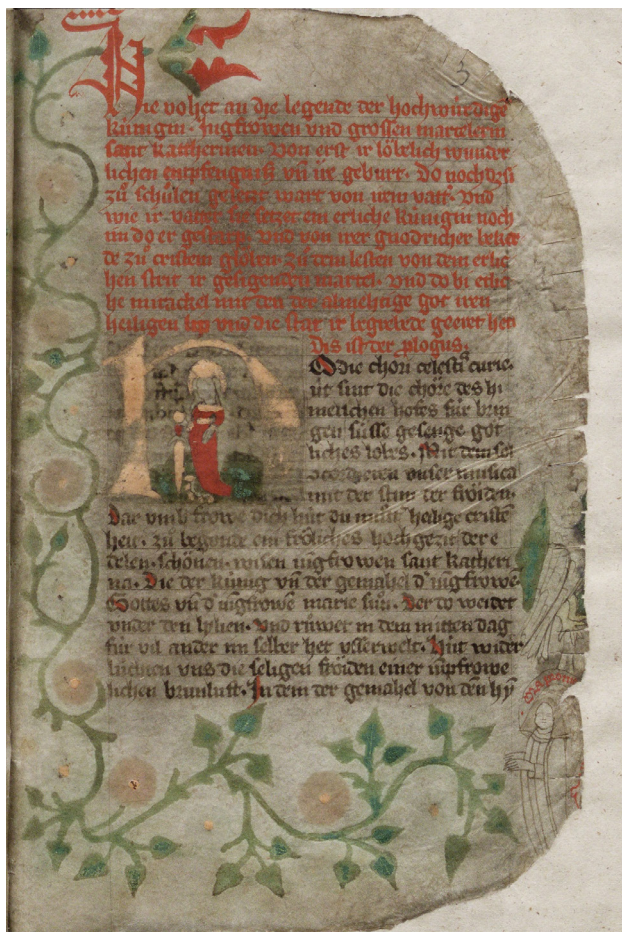 13
Hie vohet an die legende der hochwúrdigē
kúnigin · jngfröwen vnd grossen martelerin
sant kattherinen · Von erst ir löbelich wunder
lichen enpfengnúß vn̄ ire geburt · Do noch
zů schůlen gesetzt wart von irem vatt͛ · Vnd
wie ir vatter sie setzet ein erliche kúnigin noch
im do er gestarp · Vnd von irer gnodricher beke
de zů cristem glöben · zů dem lesten von dem erlic
hen strit ir gesigenden martel · vnd do bi etlic
he mirackel mit den der almehtige got iren
heiligen lip vnd die stat ir begrebede geeret het
Dis ist der plogus ·
Odie chori celesti curie ·
úr sint die chöre des hi
melichen hofes fúr brin
gen sússe gesenge got
liches lobes · Mit dem sei
vnser musica
mit der stim der fröiden ·
Dar vmb frowe dich hút du můt͛ heilige cristē
heit · zů begonde ein fröliches hochgezit der e
delen · schönen · wisen iungfrowen sant katheri
na · Die der kúnig vn̄ der gemahel d͛ iūgfrowe
Gottes vn̄ d͛ iūgfrowē marie sůn · Der do weidet
vnder den lylien · vnd růwet in dem mitten dag
fúr vil ander im selber het vsserwelt · Hút wider
lúchten vns die seligen fröiden einer iūpfrowe
lichen brunluft · In dem der gemahel von den hy̅